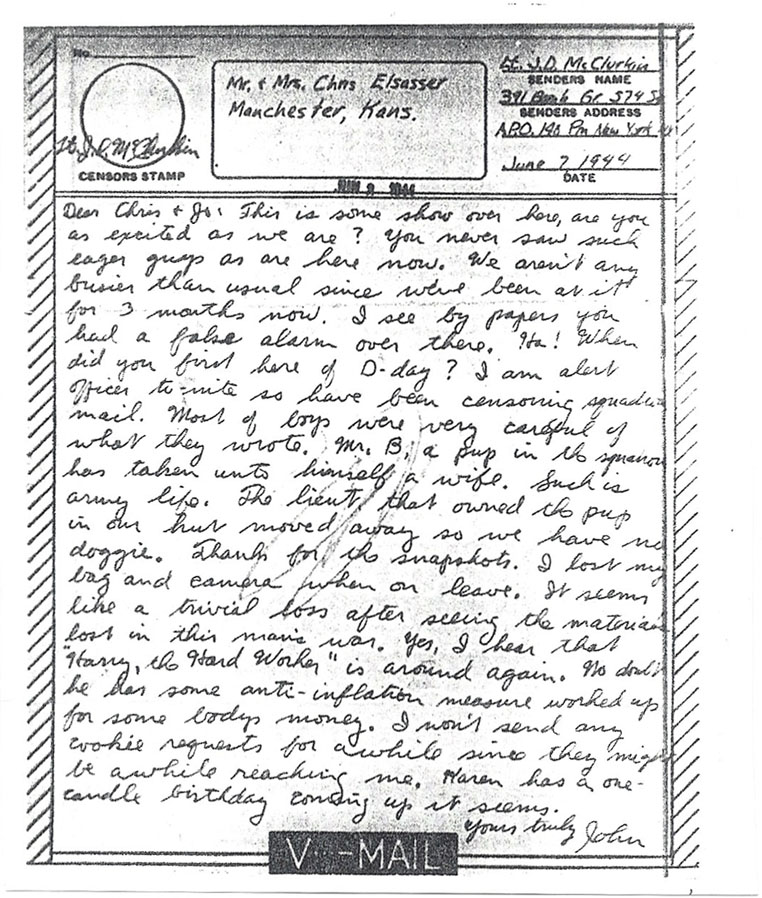 No.
Mr. & Mrs. Chris Elsasser
Manchester, Kans.
Lt. J.D. McClurkin
SENDERS NAME
391 Bomb Gr 574 S
SENDERS ADDRESS
A.P.O. 140 Pm New York
June 7, 1944
DATE
Lt. J.D. McClurkin
CENSORS STAMP
JUN 9 1944
Dear Chris & Jo: This is some show over here, are you
as excited as we are? You never saw such
eager guys as are here now. We aren't any
busier than usual since we've been at it
for 3 months now. I see by papers you
had a false alarm over there. Ha! When
did you first here of D-day? I am alert
officer to-nite so have been censoring squadron
mail. Most of boys were very careful of
what they wrote. Mr. B, a pup in the squadron
has taken unto himself a wife. Such is
army life. The lieut. that owned the pup
in our hut moved away so we have no
doggie. Thanks for the snapshots. I lost my
bag and camera when on leave. It seems
like a trivial loss after seeing the materials
lost in this man's war. Yes, I hear that
"Harry, the Hard Worker" is around again. No doubt
he has some anti-inflation measure worked up
for some bodys money. I won't send any
cookie requests for awhile since they might
be awhile reaching me. Karen has a one-
candle birthday coming up it seems.
Yours truly John
V···-MAIL